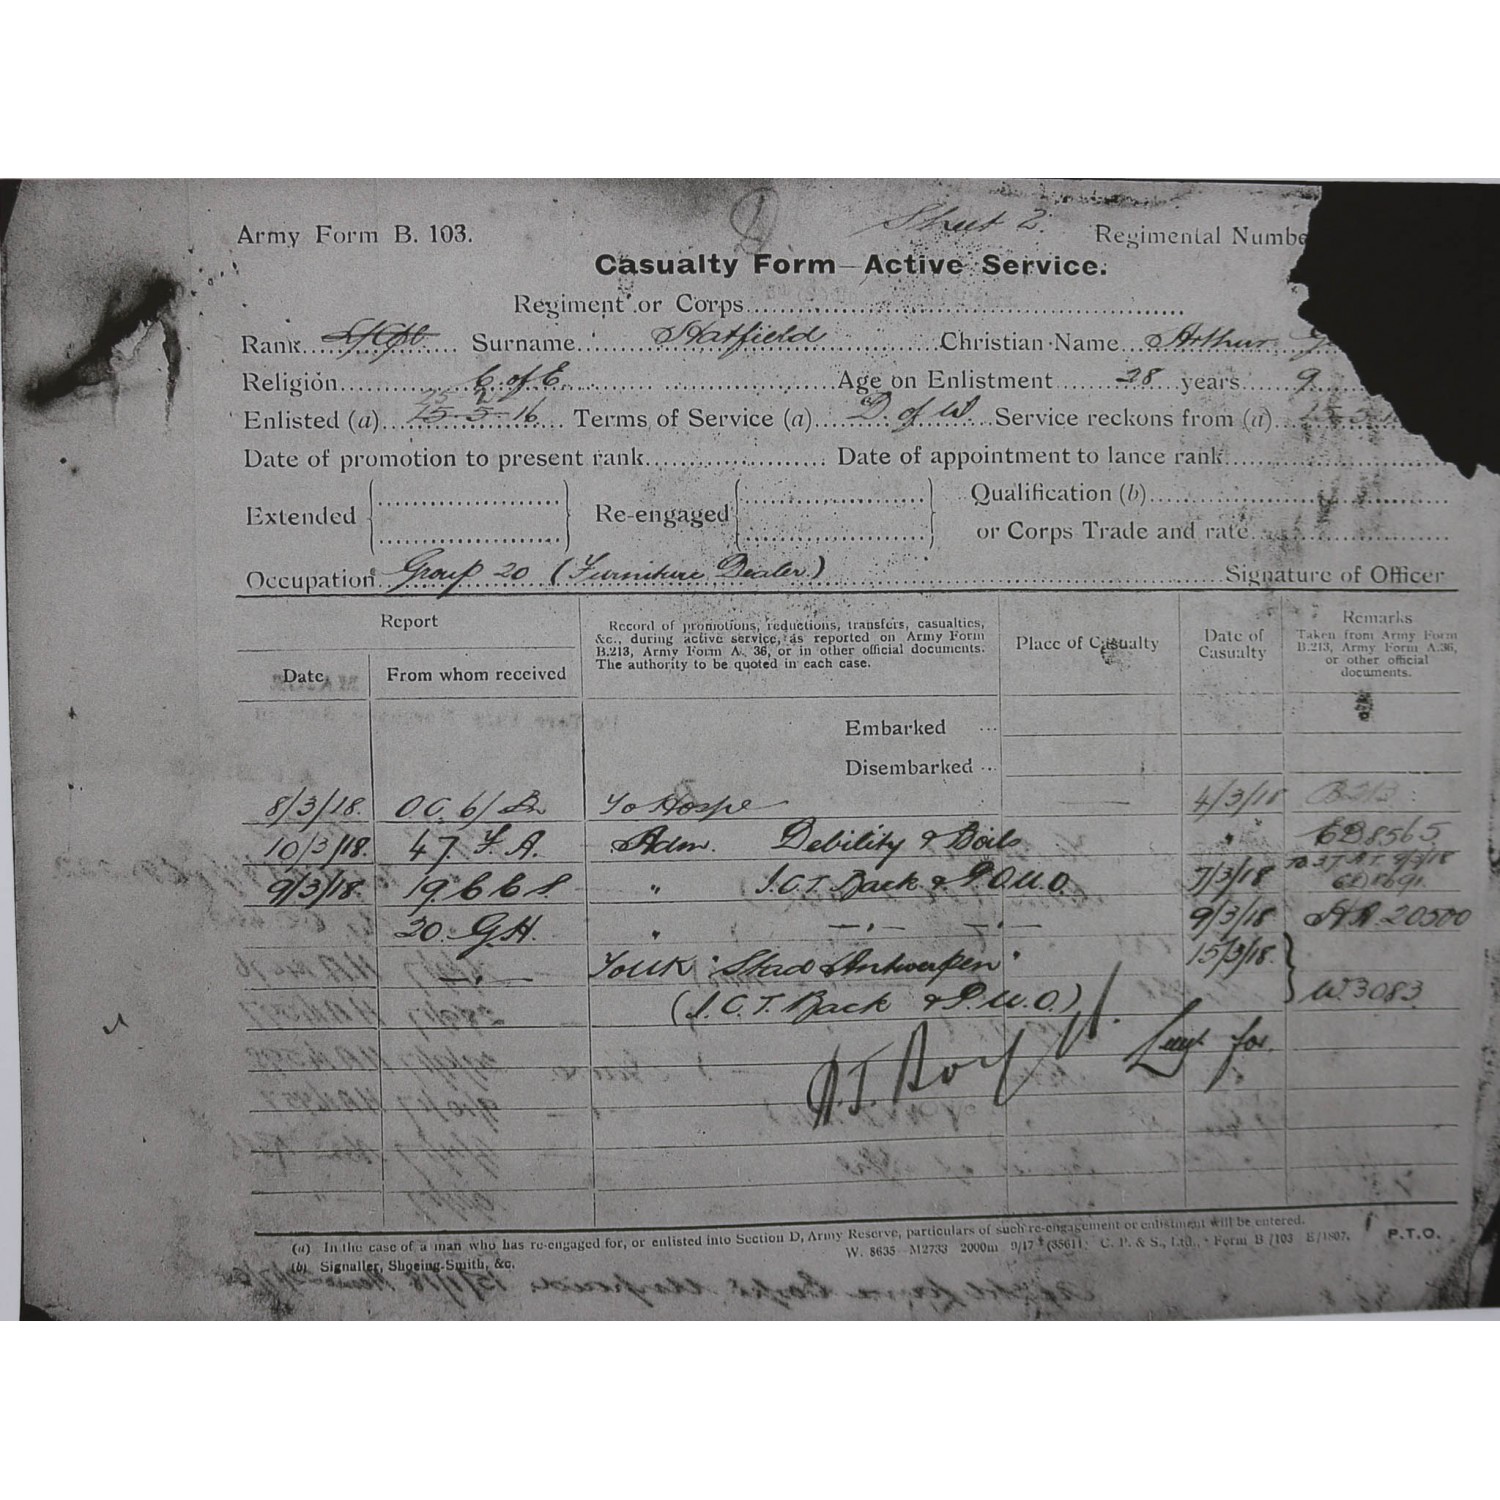 Sheet 2.
Army Form B. 103. Regimental Numbe
Casualty Form—Active Service.
Regiment or Corps
Rank Surname Hatfield Christian Name Arthur
Religion C. of E. Age on Enlistment 28 years 9
Enlisted (a) 25-5-16 Terms of Service (a) D. of W. Service reckons from (a)
Date of promotion to present rank Date of appointment to lance rank
Extended Re-engaged Qualification (b)
or Corps Trade and rate
Occupation Group 20 (Furniture Dealer.) Signature of Officer
Report
Date From whom received
Record of promotions, reductions, transfers, casualties,
&c., during active service, as reported on Army Form
B.213, Army Form A. 36, or in other official documents.
The authority to be quoted in each case.
Place of Casualty
Date of
Casualty
Remarks
Taken from Army Form
B.213, Army Form A.36,
or other official
documents.
Embarked ...
Disembarked ...
8/3/18. O.C. 6/Bn To Hosp 4/3/18 B213
10/3/18. 47 F.A. Adm. Debility & Boils " CD8565
9/3/18. 19 C C S. " I.C.T. Back & P.U.O. 7/3/18 9/3/18
20 G.H. " 9/3/18 HA 20500
To UK "Stad Antwerpen" 15/3/18.
(I.C.T. Back & P.U.O.) W.3083
Lieut for
(a) In the case of a man who has re-engaged for, or enlisted into Section D, Army Reserve, particulars of such re-engagement or enlistment will be entered.
(b) Signaller, Shoeing-Smith, &c.
W. 8635—M2733 2000m 9/17 (35611) C. P. & S., Ltd., Form B/103 E/1807.
P.T.O.